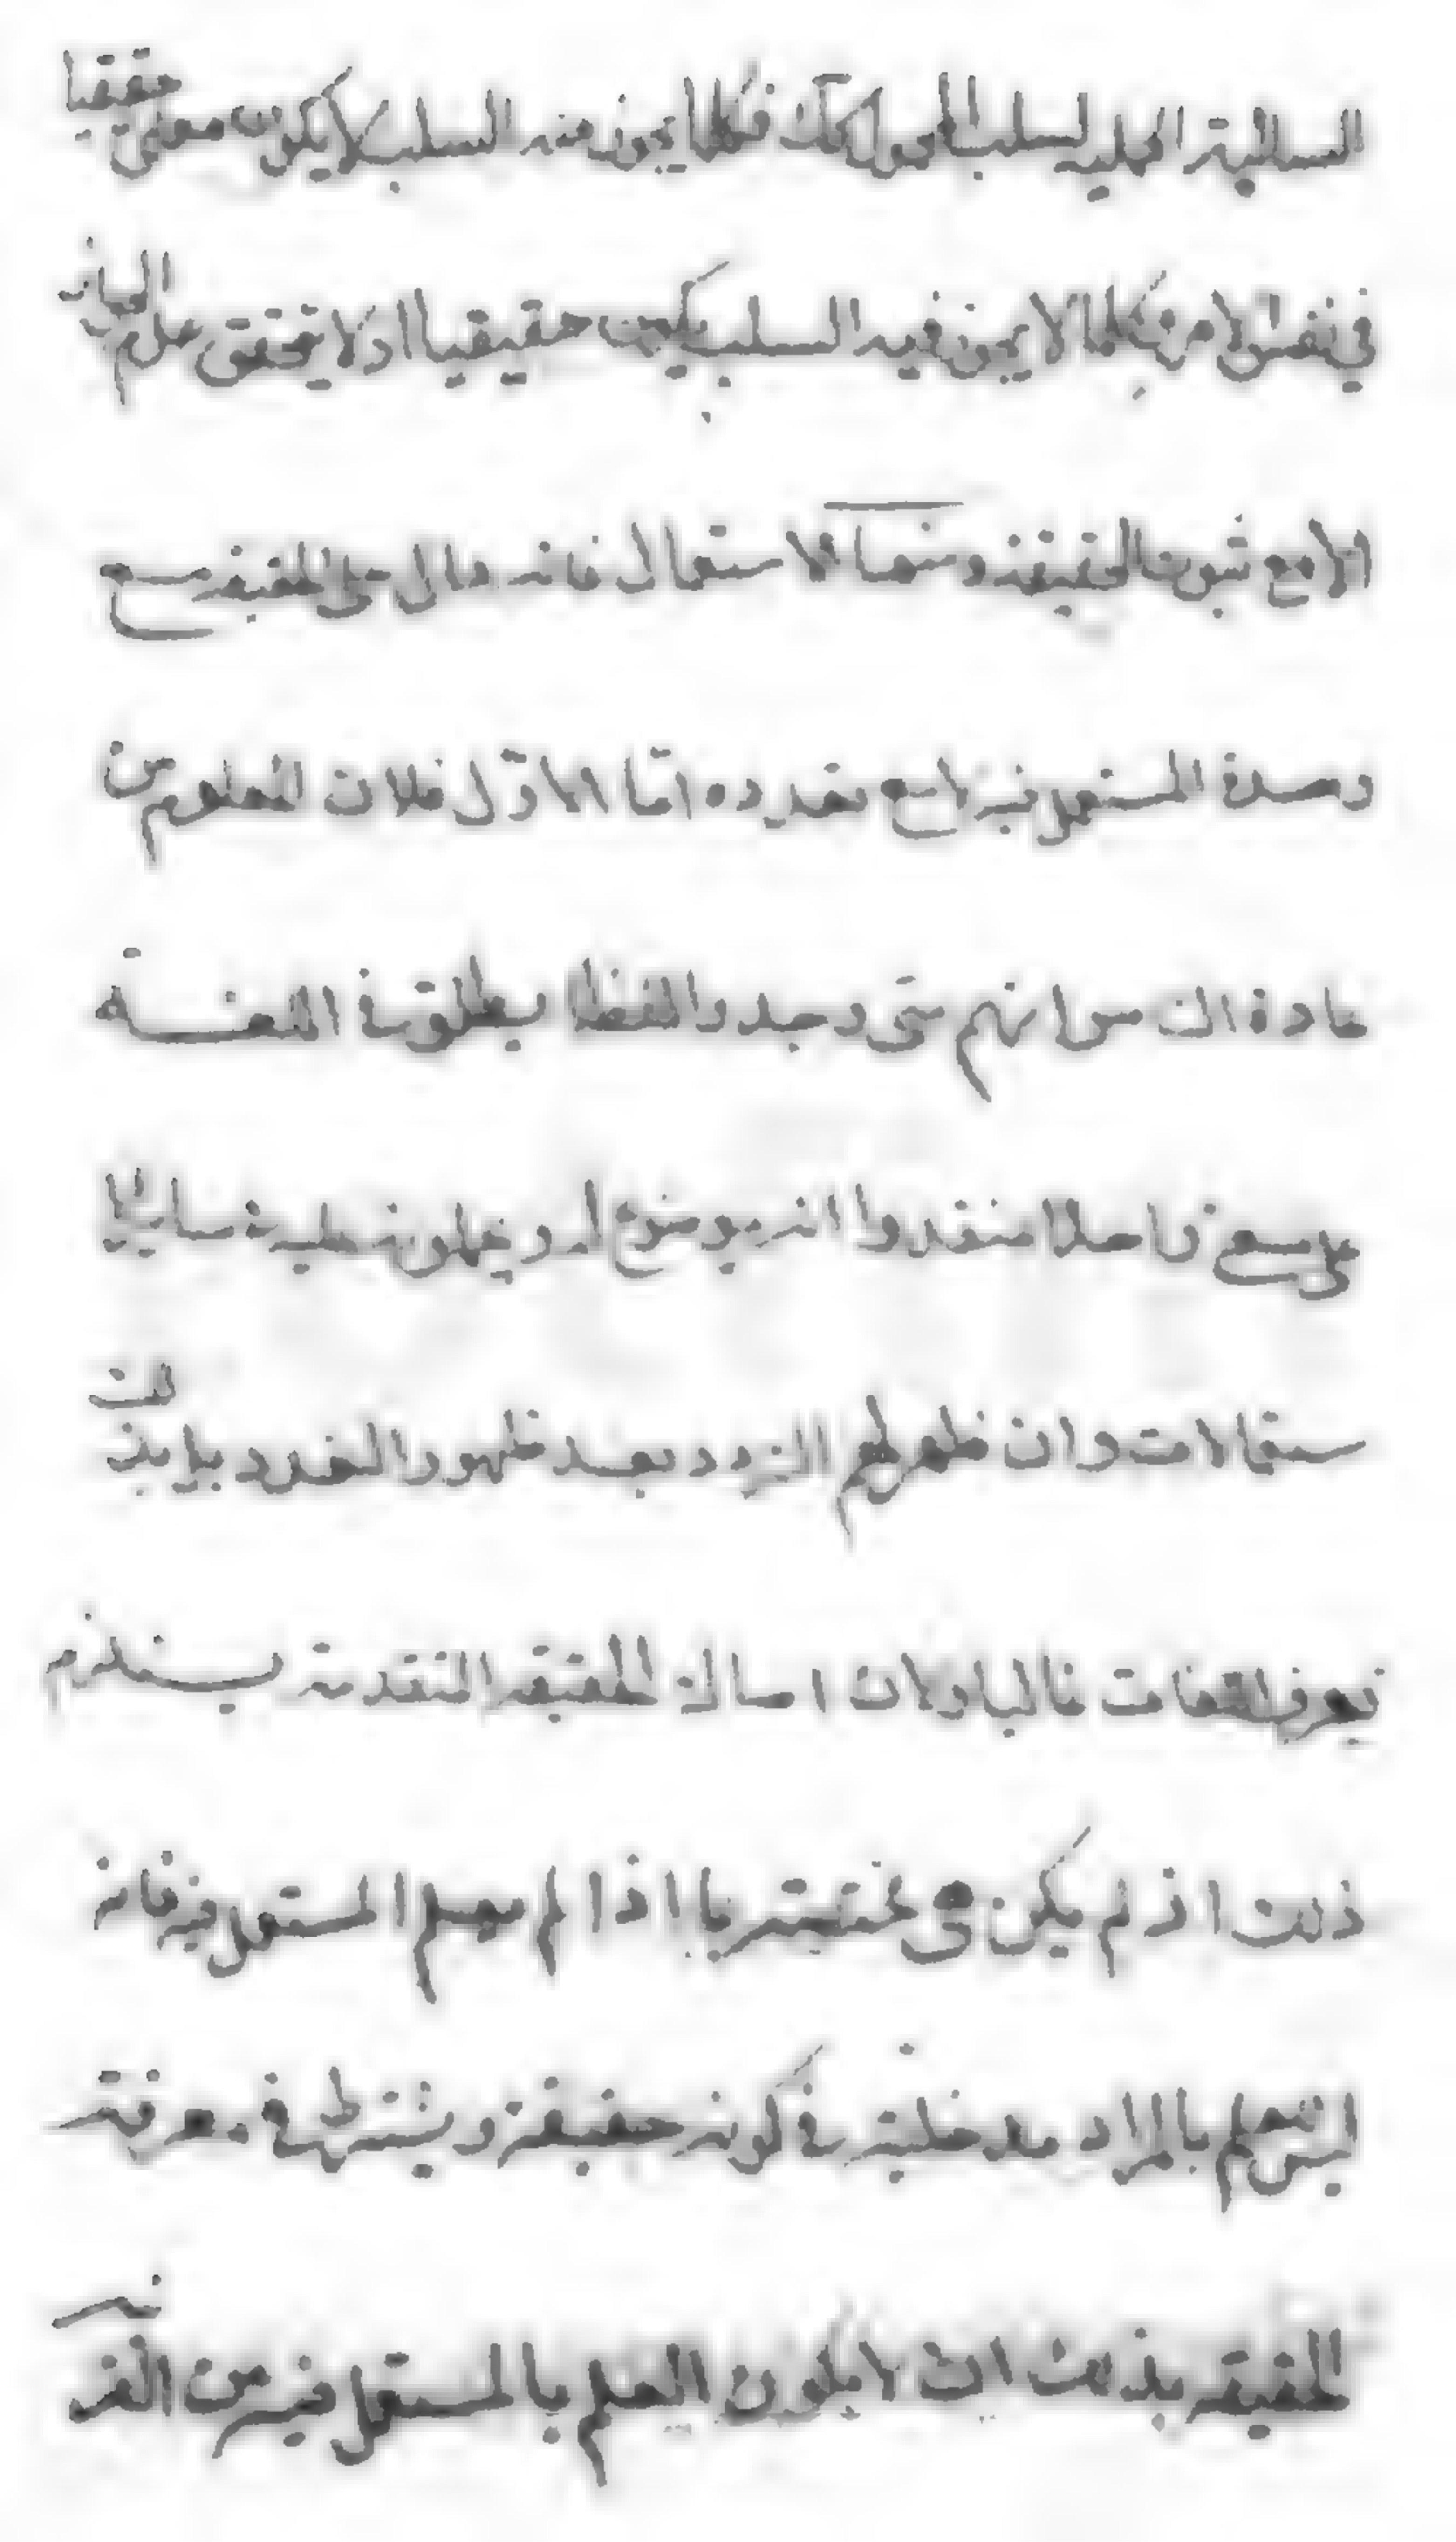 السالبة الجلية لسلب المحمول كك فكلما يجوز منه السلب لا يكون معنى حقيقيا
في نفس الامر فكلما لا يجوز فيه السلب يكون حقيقيا اذ لا يتحقق علم المجاز
الا مع ثبوت الحقيقة ومنها الاستعمال فانه دال على الحقيقة مع
وحدة المستعمل فيه لا مع تعدده امّا الاوّل فلان المعلوم من
عادة الناس انهم متى وجدوا لفظا يطلق في اللغة
على معنى واحد اعتقدوا انه موضوع له ويحملونه عليه في ساير الا
ستعمالات وان ظهر لهم التردد بعد ظهور التعدد بل بذلك
تعرف اللغات غالبا ولان امساك الحقيقة المتقدمة يستلزم
ذلك اذ لم يكن هي مختصة بما اذا لم يعلم المستعمل فيه فانه
ليس للعلم بالمراد مدخلية في كونه حقيقة ويشترط في معرفة
الحقيقة بذلك ان لا يكون العلم بالمستعمل فيه من القر